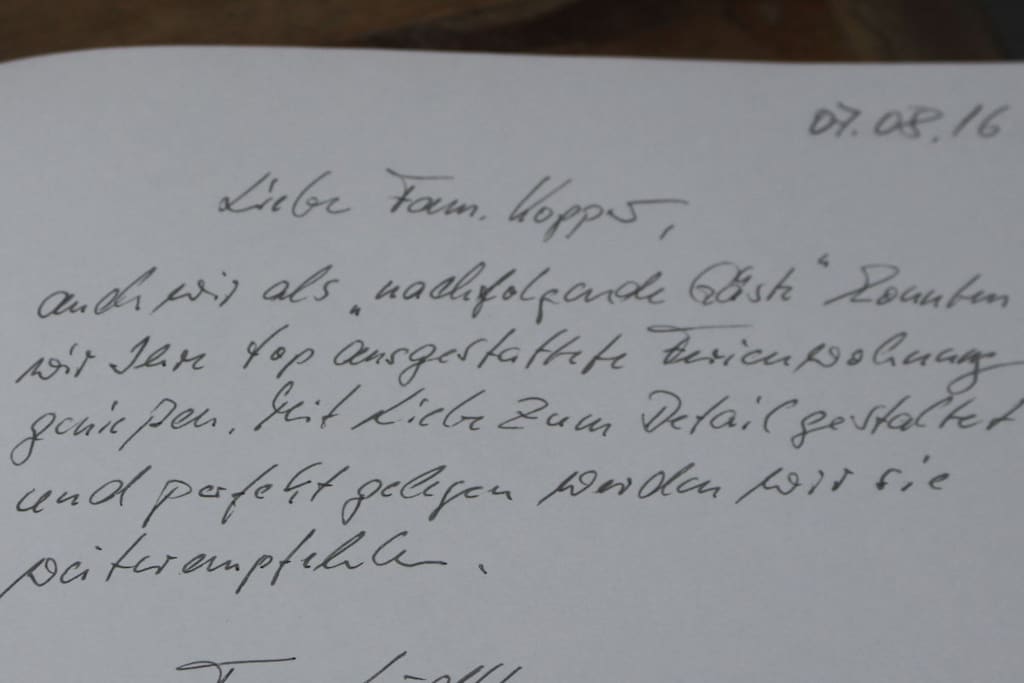 07.08.16
Liebe Fam. Kopper,
auch wir als „nachfolgende Gäste“ konnten
wir Ihre top ausgestattete Ferienwohnung
genießen. Mit Liebe zum Detail gestaltet
und perfekt gelegen werden wir sie
weiterempfehlen.